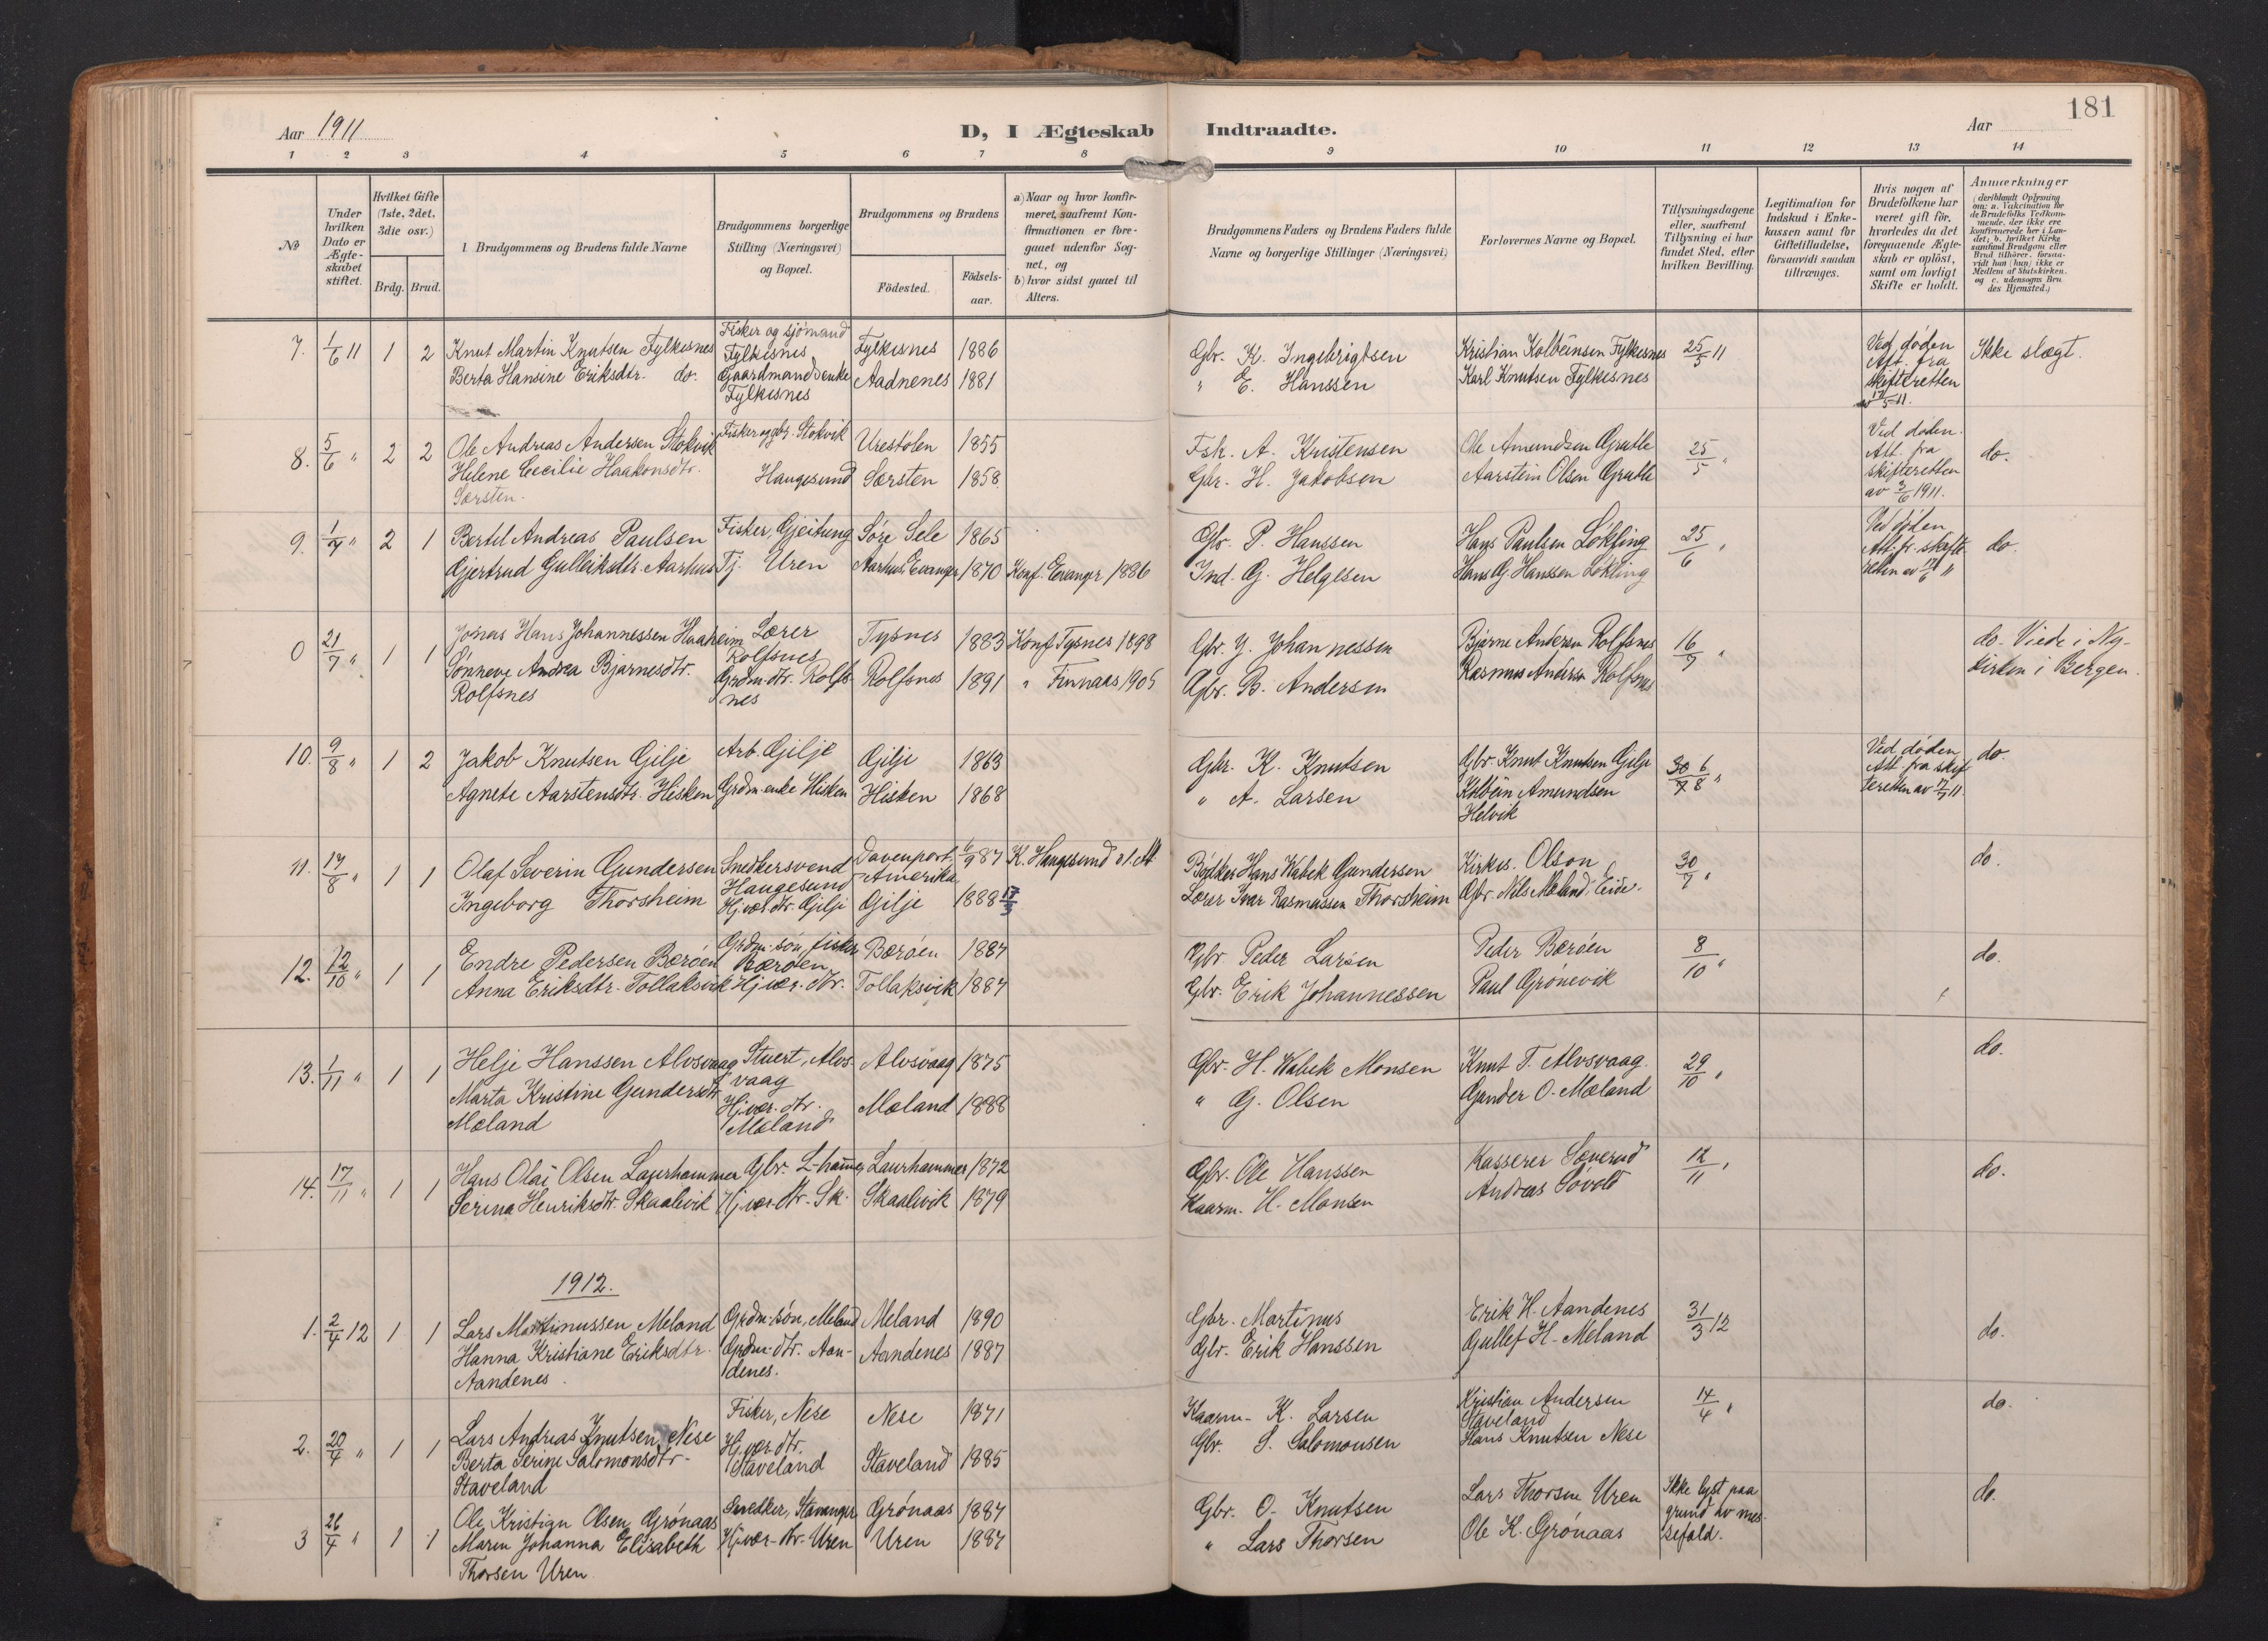 181
Aar 1911
D, I Ægteskab Indtraadte.
Aar
1 2 3 4 5 6 7 8 9 10 11 12 13 14
№
Under hvilken Dato er Ægteskabet stiftet.
Hvilket Gifte (1ste, 2det, 3die osv.)
Brdg. Brud.
Brudgommens og Brudens fulde Navne
Brudgommens borgerlige Stilling (Næringsvei) og Bopæl.
Brudgommens og Brudens
Födested.
Födsels-aar.
a) Naar og hvor konfirmeret, saafremt Konfirmationen er foregaaet udenfor Sognet, og
b) hvor sidst gaaet til Alters.
Brudgommens Faders og Brudens Faders fulde Navne og borgerlige Stillinger (Næringsvei)
Forlovernes Navne og Bopæl.
Tillysningsdagene eller, saafremt Tillysning ei har fundet Sted, efter hvilken Bevilling.
Legitimation for Indskud i Enkekassen samt for Giftetilladelse, forsaavidt saadan tiltrænges.
Hvis nogen af Brudefolkene har været gift för, hvorledes da det foregaaende Ægteskab er oplöst, samt om lovligt Skifte er holdt.
Anmærkninger (deriblandt Oplysning om: a. Vakcination for de Brudefolks Vedkommende, der ikke ere konfirmerede her i Landet; b. hvilket Kirkesamfund Brudgom eller Brud tilhörer, forsaavidt han (hun) ikke er Medlem af Statskirken, og c. udensogns Brudes Hjemsted.)
7. 1/6 11 1 2 Knut Martin Knutsen Fylkesnes Fisker og sjömand Fylkesnes Fylkesnes 1886 Gbr. K. Ingebrigtsen Kristian Kolbeinsen Fylkesnes 25/5 11 Ved døden Att. fra skifteretten av 17/5 11. Ikke slægt.
Berta Hansine Eriksdtr. do. Gaardmandsenke Fylkesnes Aadnenes 1881 " E. Hanssen Karl Knutsen Fylkesnes
8. 5/6 " 2 2 Ole Andreas Andersen Stokvik Fisker og gbr. Stokvik Urestölen 1855 Fsk. A. Kristensen Ole Amundsen Grutle 25/5 " Ved døden. Att. fra skifteretten av 3/6 1911. do.
Helene Cecilie Haakonsdtr. Særsten. Haugesund Særsten 1858. Gbr. H. Jakobsen Aarstein Olsen Grutle
9. 1/7 " 2 1 Bertel Andreas Paulsen Fisker, Gjeitung Söre Sele 1865 Gbr. P. Hanssen Hans Paulsen Lökling 25/6 " Ved døden Att. fr. skifteretten av 17/6 " do.
Gjertrud Gulleiksdtr. Aarhus Tj. Uren Aarhus, Evanger 1870 Konf. Evanger 1886 Ind. G. Helgesen Hans G. Hanssen Lökling
0 21/7 " 1 1 Jonas Hans Johannessen Haaheim Lærer Rolfsnes Tysnes 1883 Konf. Tysnes 1898 Gbr. J. Johannessen Bjarne Andersen Rolfsnes 16/7 " do. Viede i Nykirken i Bergen.
Sönneve Andrea Bjarnesdtr. Rolfsnes Grdm.dtr. Rolfsnes Rolfsnes 1891 " Finnaas 1905 Gbr. B. Andersen Rasmus Andersen Rolfsnes
10. 9/8 " 1 2 Jakob Knutsen Gilje Arb. Gilje Gilje 1863 Gbr. K. Knutsen Gbr. Knut Knutsen Gilje 30/7 6/8 " Ved døden Att. fra skifteretten av 17/7 11. do.
Agnete Aarstensdtr. Hisken Grdm.enke Hisken Hisken 1868 " A. Larsen Kolbein Amundsen Helvik
11. 17/8 " 1 1 Olaf Severin Gundersen Snedkersvend Haugesund Davenport, Amerika 6/9 87 K. Haugesund Bödker Hans Wabek Gundersen Kirkes. Olson 30/7 " do.
Ingeborg Thorsheim Hj.vær. dtr. Gilje Gilje 1888 17/3 Lærer Ivar Rasmussen Thorsheim Gbr. Nils Mæland, Eide.
12. 12/10 " 1 1 Endre Pedersen Bæröen Grdm.sön, fisker Bæröen Bæröen 1887 Gbr. Peder Larsen Peder Bæröen 8/10 " do.
Anna Eriksdtr. Tollaksvik Hj.vær. dtr. Tollaksvik 1887 Gbr. Erik Johannessen Paul Grönevik
13. 1/11 " 1 1 Helje Hanssen Alvsvaag Stuert, Alvsvaag Alvsvaag 1875 Gbr. H. Wabek Monsen Knut T. Alvsvaag. 29/10 " do.
Marta Kristine Gundersdtr Mæland Hj.vær. dtr. Mæland Mæland 1888 " G. Olsen Gunder O. Mæland
14. 17/11 " 1 1 Hans Olai Olsen Laurhammer Gbr. L-hammer Laurhammer 1872 Gbr. Ole Hanssen Kasserer Sæverud 12/11 " do.
Serina Henriksdtr. Skaalevik Hj.vær. dtr. Sk. Skaalevik 1879 Kaarm. H. Monsen Andreas Søvold
1912.
1. 2/4 12 1 1 Lars Martinussen Meland Grdm.sön, Meland Meland 1890 Gbr. Martinus Erik H. Aandenes 31/3 12 do.
Hanna Kristiane Eriksdtr. Aandenes. Grdm.dtr. Aandenes. Aandenes 1887 Gbr. Erik Hanssen Gullef H. Meland
2. 20/4 " 1 1 Lars Andreas Knutsen Nese Fisker, Nese Nese 1871 Kaarm. K. Larsen Kristian Andersen Staveland 14/4 " do.
Berta Serine Salomonsdtr. Staveland Hj.vær. dtr. Staveland Staveland 1885 Gbr. S. Salomonsen Hans Knutsen Nese
3 26/4 " 1 1 Ole Kristian Olsen Grönaas Snedker, Stavanger Grönaas 1887 Gbr. O. Knutsen Lars Thorsen Uren Ikke lyst paa grund av messefald. do.
Maren Johanna Elisabeth Thorsen Uren. Hj.vær. dtr. Uren Uren 1887 " Lars Thorsen Ole K. Grönaas